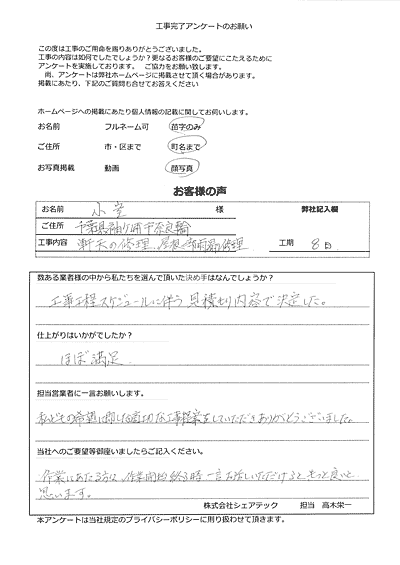 工事完了アンケートのお願い
この度は工事のご用命を賜りありがとうございました。
工事の内容は如何でしたでしょうか？更なるお客様のご要望にこたえるために
アンケートを実施しております。　ご協力をお願い致します。
尚、アンケートは弊社ホームページに掲載させて頂く場合があります。
掲載にあたり、下記のご質問も合せてお答えください
ホームページへの掲載にあたり個人情報の記載に関してお伺いします。
お名前　フルネーム可　苗字のみ
ご住所　市・区まで　町名まで
お写真掲載　動画　顔写真
お客様の声
お名前　小　様　弊社記入欄
ご住所　千葉県袖ケ浦市奈良輪
工事内容　軒天の修理、屋根　修理　工期　8日
数ある業者様の中から私たちを選んで頂いた決め手はなんでしょうか？
工事工程スケジュールに伴う見積もり内容で決定した。
仕上がりはいかがでしたか？
ほぼ満足
担当営業者に一言お願いします。
私どもの希望に即した適切な工事提案をしていただきありがとうございました。
当社へのご要望等御座いましたらご記入ください。
作業にあたる方は、作業開始終了時一言お話しいただけるともっと良いと
思います。
株式会社シェアテック　担当　高木栄一
本アンケートは当社規定のプライバシーポリシーに則り扱わせて頂きます。